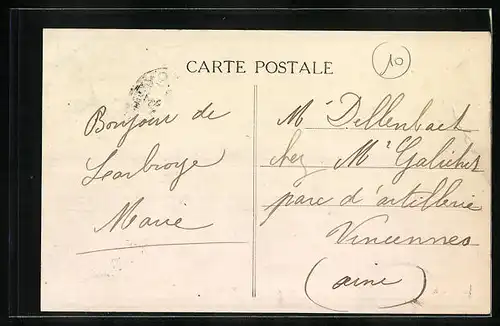 CARTE POSTALE
10
Bonjour de
Learbroye
Marie
Mr Dellenbach
chez Mr Galichet
parc d'artillerie
Vincennes
(aine)